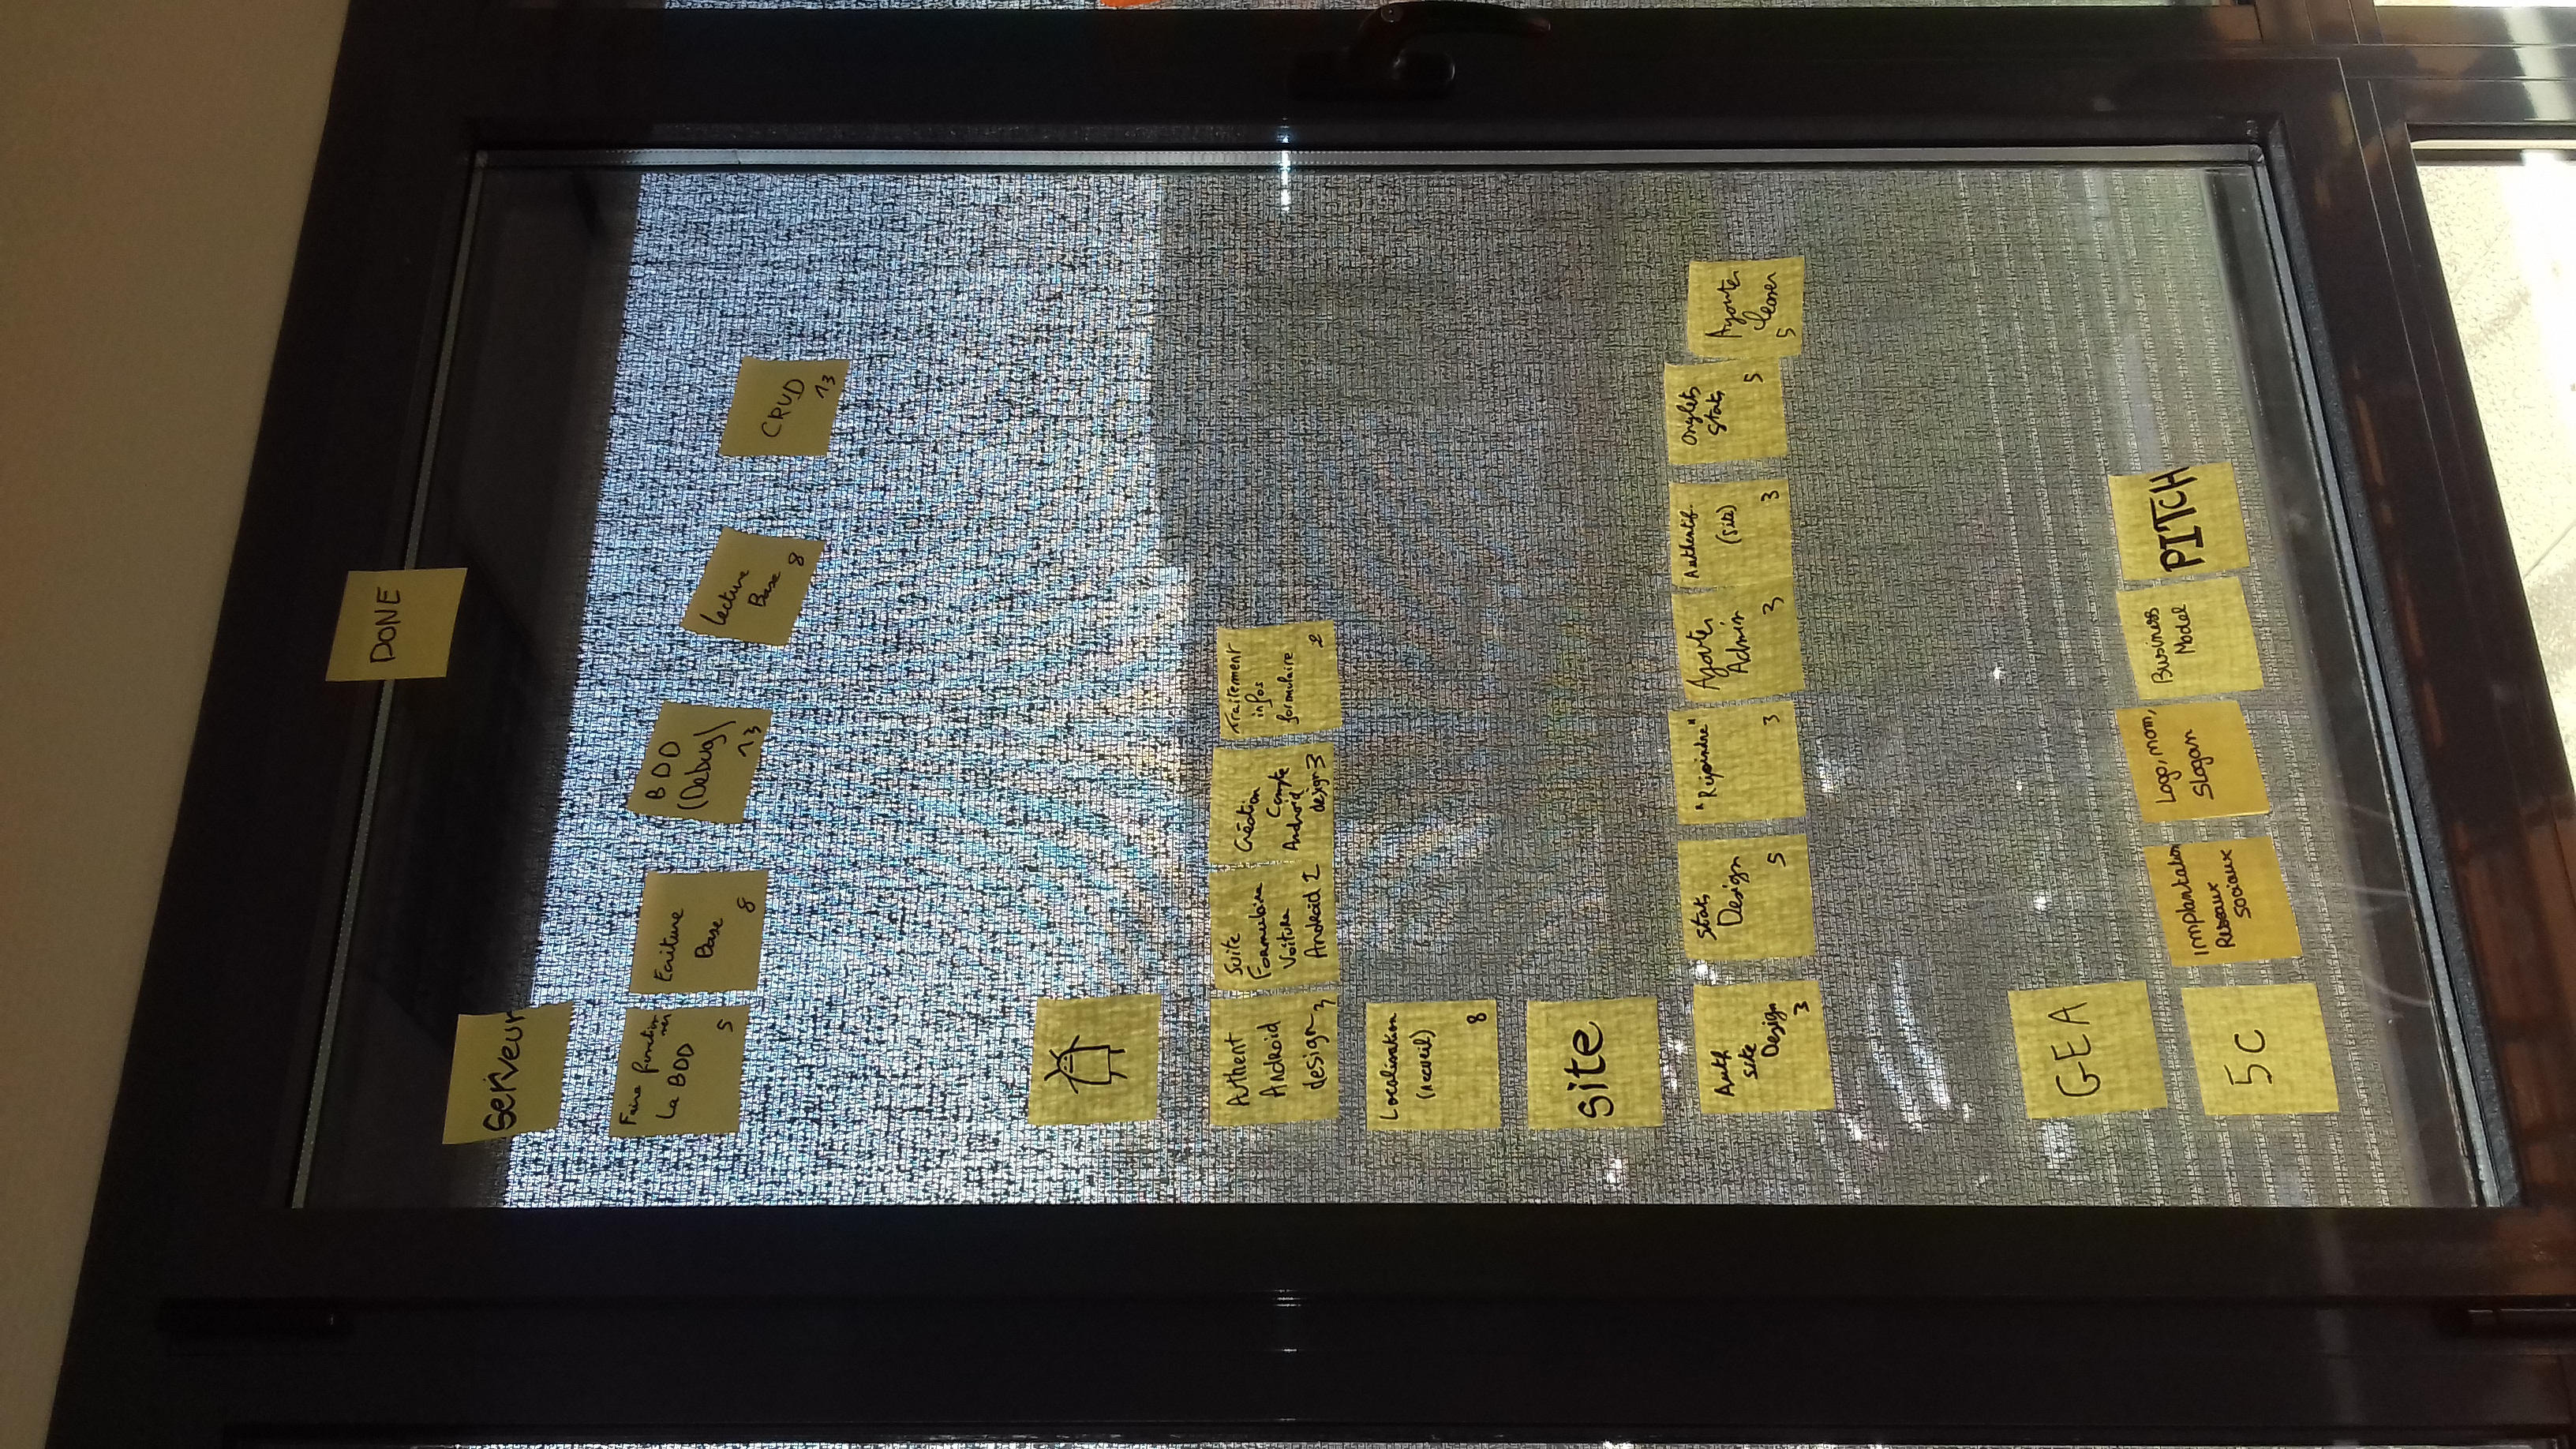 DONE
Serveur
Faire fonction
ner
La BDD
5
Ecriture
Base
8
BDD
(Debug)
13
Lecture
Base
8
CRUD
13
Authent
Android
design
3
Suite
Formulaire
Voiture
Android 2
Création
Compte
Android
design 3
Traitement
infos
formulaire
2
Localisation
(Accueil)
8
site
Auth
site
Design
3
Stats
Design
5
"Rejoindre"
3
Ajouter
Admin
3
Authentif.
(Site)
3
Onglets
Stats
5
Ajouter
5
GEA
5C
Implantation
Réseaux
sociaux
Logo, nom,
Slogan
Business
Model
PITCH